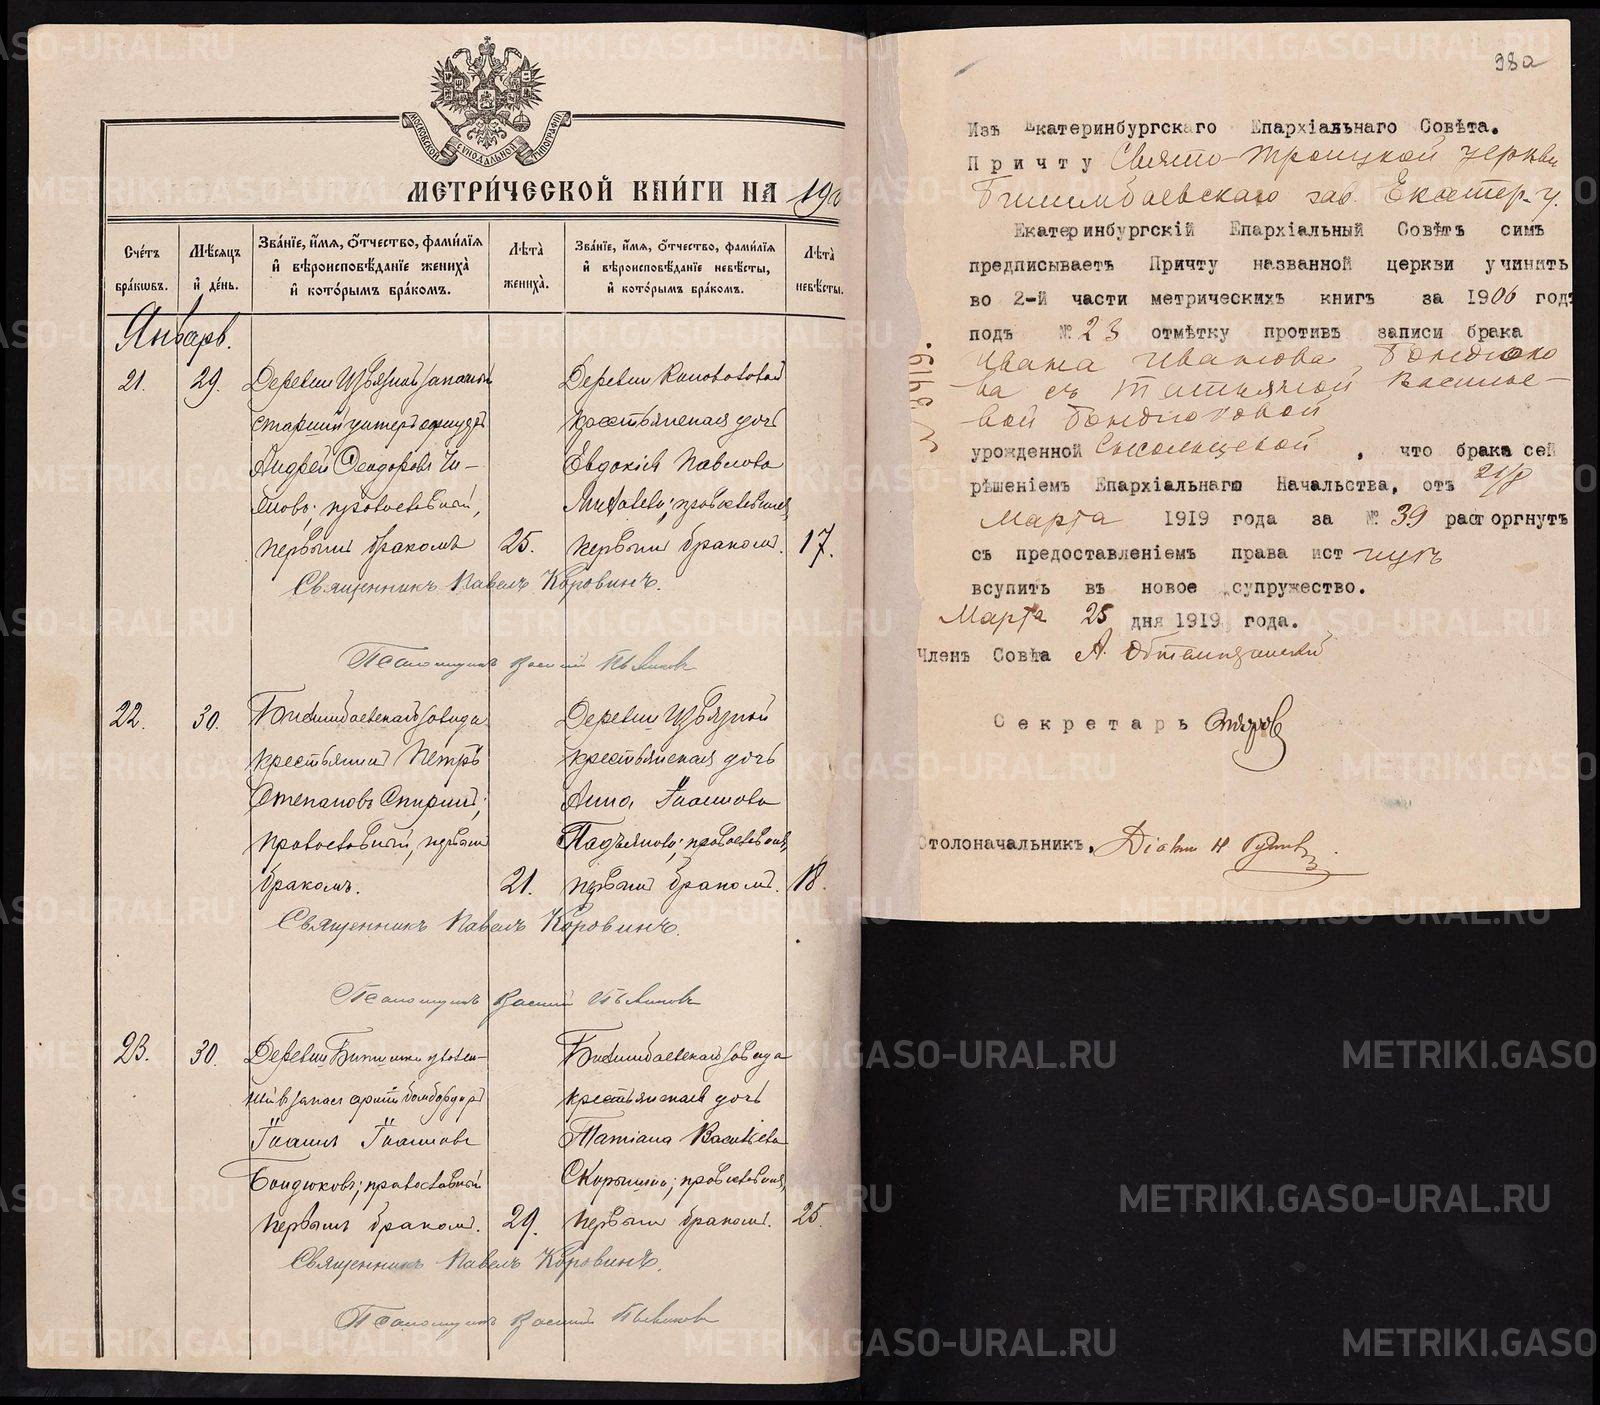 МОСКОВСКОЙ СѴНОДАЛЬНОЙ ТИПОГРАФІИ
МЕТРИ́ЧЕСКОЙ КНИ́ГИ НА 190
Сче́тъ бра́кѡвъ.
Мѣ́сяцъ и҆ де́нь.
Зва́нїе, и҆́мя, ѻ҆́тчество, фами́лїя и҆ вѣроисповѣ́данїе жениха̀ и҆ кото́рымъ бра́комъ.
Лѣта̀ жениха̀.
Зва́нїе, и҆́мя, ѻ҆́тчество, фами́лїя и҆ вѣроисповѣ́данїе невѣ́сты, и҆ кото́рымъ бра́комъ.
Лѣта̀ невѣ́сты.
Январь.
21.
29.
Деревни
старшій унтеръ
Андрей Ѳеодоровъ
православный,
первымъ бракомъ
25.
Деревни Коноваловой
крестьянская дочь
Евдокія Павлова
православная,
первымъ бракомъ.
17.
Священникъ Павелъ Коровинъ.
Псаломщикъ Василій
22.
30.
Билимбаевскаго завода
крестьянинъ Петръ
Степановъ Спиринъ;
православный, первымъ
бракомъ.
21.
Деревни
крестьянская дочь
Анна Іоаннова
православная,
первымъ бракомъ.
18.
Священникъ Павелъ Коровинъ.
Псаломщикъ Василій
23.
30.
Деревни
въ запасъ арміи бомбардиръ
Іоаннъ Іоанновъ
Бондюковъ; православный
первымъ бракомъ.
29.
Билимбаевскаго завода
крестьянская дочь
Татіана Васильева
православная,
первымъ бракомъ.
25.
Священникъ Павелъ Коровинъ.
Псаломщикъ Василій
98а
Изъ Екатеринбургскаго Епархіальнаго Совѣта.
Причту Свято-Троицкой церкви
Билимбаевскаго зав. Екатер. у.
Екатеринбургскій Епархіальный Совѣтъ симъ
предписываетъ Причту названной церкви учинить
во 2-й части метрическихъ книгъ за 1906 годъ
подъ № 23 отмѣтку противъ записи брака
Ивана Иванова Бондюко
ва съ Татьяной Василье-
вой Бондюковой
урожденной , что бракъ сей
рѣшеніемъ Епархіальнаго Начальства, отъ 21/8
Марта 1919 года за № 39 расторгнутъ
съ предоставленіемъ права истицѣ
вступить въ новое супружество.
Марта 25 дня 1919 года.
Членъ Совѣта А.
Секретарь
Столоначальникъ,
METRIKI.GASO-URAL.RU